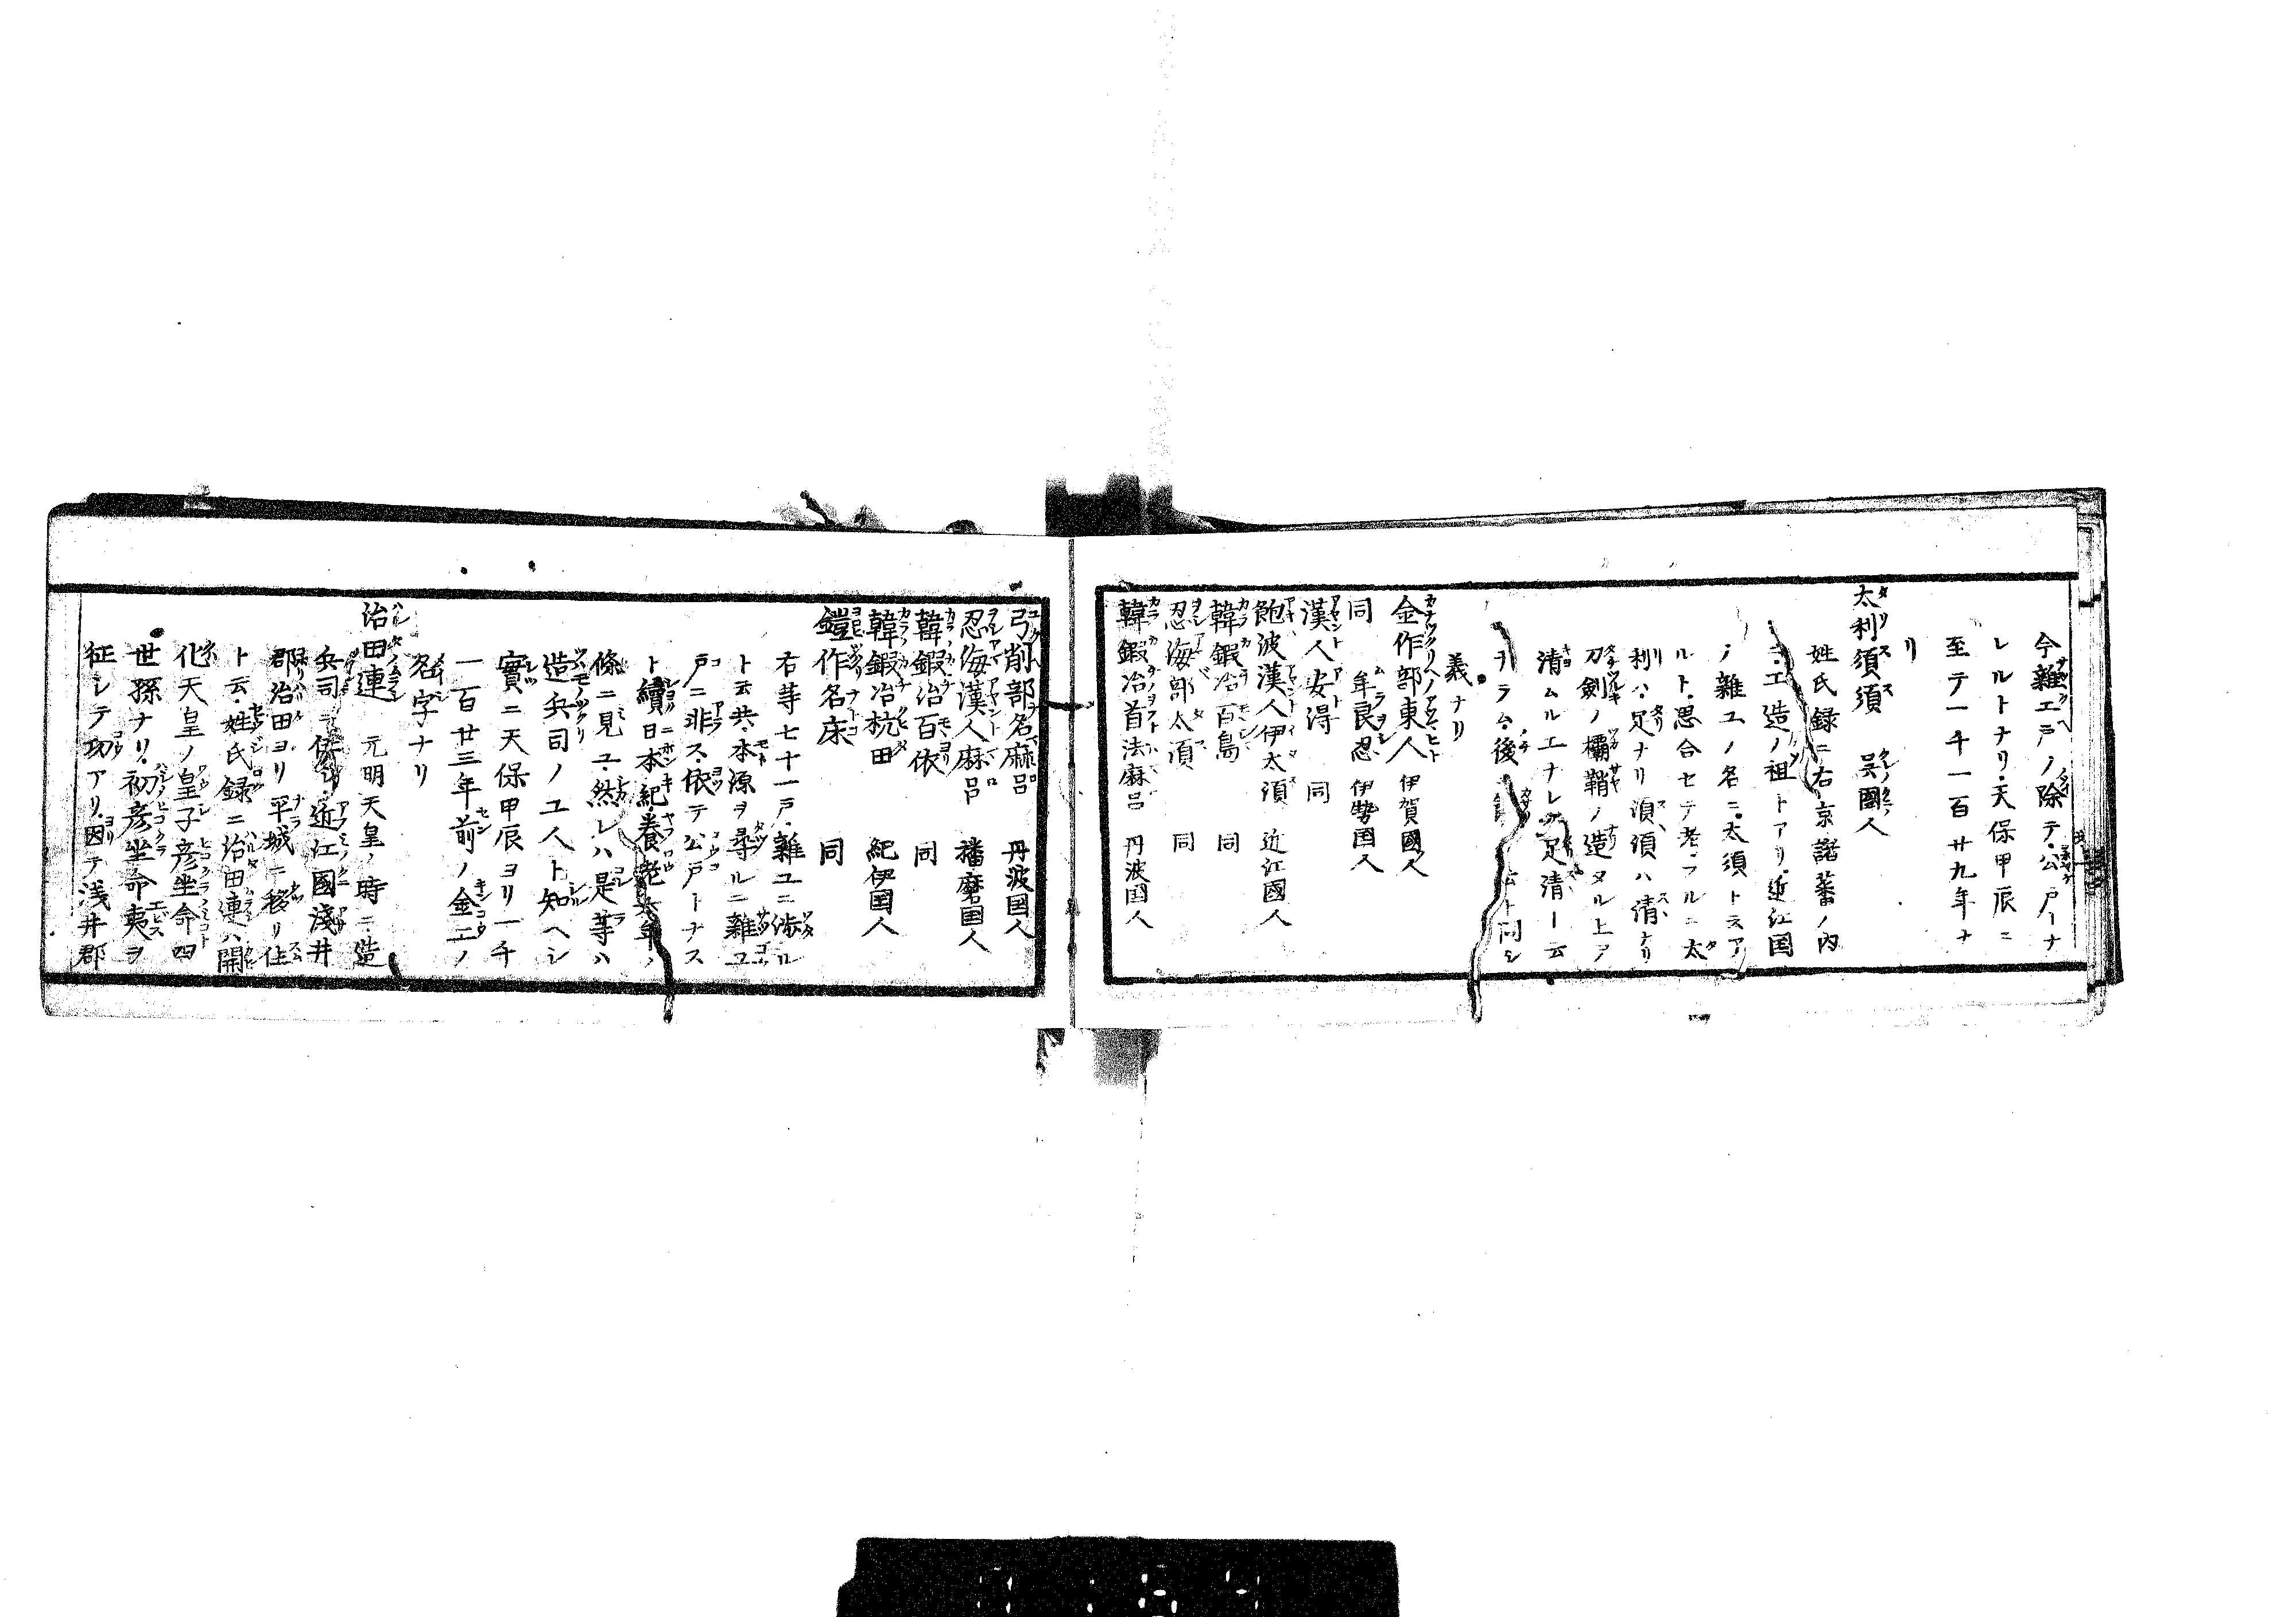 今雜工戸ノ除テ公戸ーナ
レルトナリ天保甲辰ニ
至テ一千一百廿九年ナ
リ
太利須須 呉國人
姓氏録ニ右京諸蕃ノ内
工造ノ祖トアリ近江国
ノ雜工ノ名ニ太須トスア
ルト思合セテ考フルニ太
利ハ足ナリ須須ハ清ナリ
刀劍ノ欛鞘ノ造タル上ヲ
清ムル工ナレ足清ー云
ヲラム後 ト同シ
義ナリ
金作部東人 伊賀國人
同 牟良忍 伊勢国人
漢人安得 同
飽波漢人伊太須 近江國人
韓鍜冶百島 同
忍海部太須 同
韓鍜冶首法麻呂 丹波国人
弓削部名麻呂 丹波国人
忍海漢人麻呂 播磨国人
韓鍜冶百依 同
韓鍜冶杭田 紀伊国人
鎧作名床 同
右等七十一戸雜工ニ渉ル
ト云共本源ヲ尋ルニ雜工
戸ニ非ス依テ公戸トナス
ト續日本紀養老六年ノ
條ニ見ユ然レハ是等ハ
造兵司ノ工人ト知ヘシ
實ニ天保甲辰ヨリ一千
一百廿三年前ノ金工ノ
名字ナリ
治田連 元明天皇ノ時ニ造
兵司ニ 近江國淺井
郡治田ヨリ平城ニ移リ住
ト云姓氏録ニ治田連ハ開
化天皇ノ皇子彦坐命四
世孫ナリ初彦坐命夷ヲ
征レテ功アリ因テ浅井郡